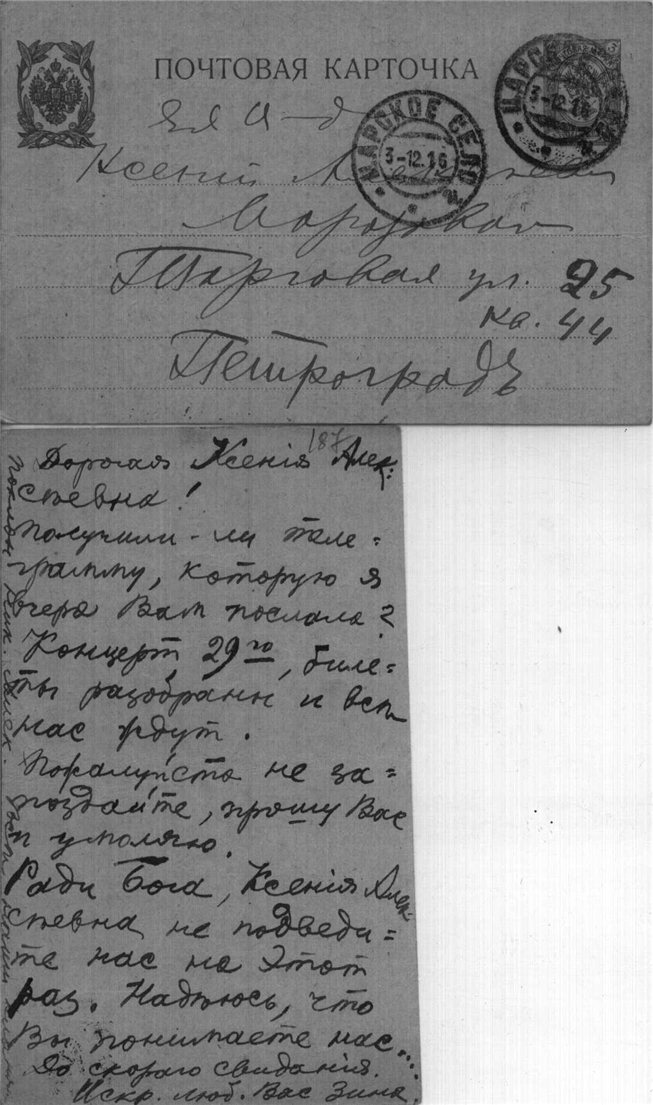 ПОЧТОВАЯ КАРТОЧКА
ЦАРСКОЕ СЕЛО
3-12.16
ЦАРСКОЕ
3-12.16
Ксеніи
Морозовой
Торговая ул. 25
кв. 44
Петроградъ
187
Дорогая Ксенія Алек:
сѣевна!
Получили-ли теле=
грамму, которую я
вчера Вам послала?
Концерт 29го, биле=
ты разобраны и всѣ
нас ждут.
Пожалуйста не за=
поздайте, прошу Вас
и умоляю.
Ради Бога, Ксенія Алек
сѣевна, не подведи=
те нас на этот
раз. Надѣюсь, что
Вы понимаете нас...
До скораго свиданія.
Искр. люб. Вас Зина.